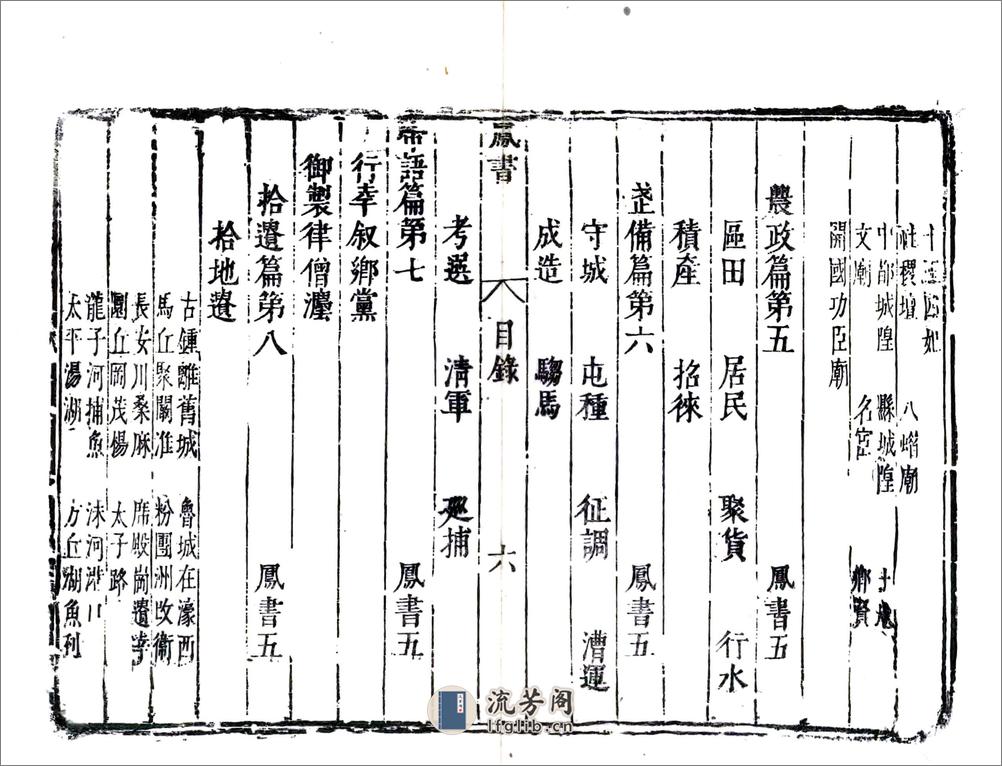 社稷壇 八蜡廟
中都城隍 縣城隍 土地
文廟 名宦 鄉賢
開國功臣廟
農政篇第五 鳳書五
區田 居民 聚貨 行水
積產 招徠
武備篇第六 鳳書五
守城 屯種 征調 漕運
成造 騸馬
鳳書 目錄 六
考選 清軍 廵捕
帝語篇第七 鳳書五
行幸叙鄉黨
御製律僧灋
拾遺篇第八 鳳書五
拾地遺
古鍾離舊城 魯城在濠西
馬丘聚關淮 粉團洲改衛
長安川桑麻 席殿崗遺
圜丘岡茂楊 太子路
龍子河捕魚 洣河港口
太平湯湖 方丘湖魚利
流芳阁
lfglib.cn